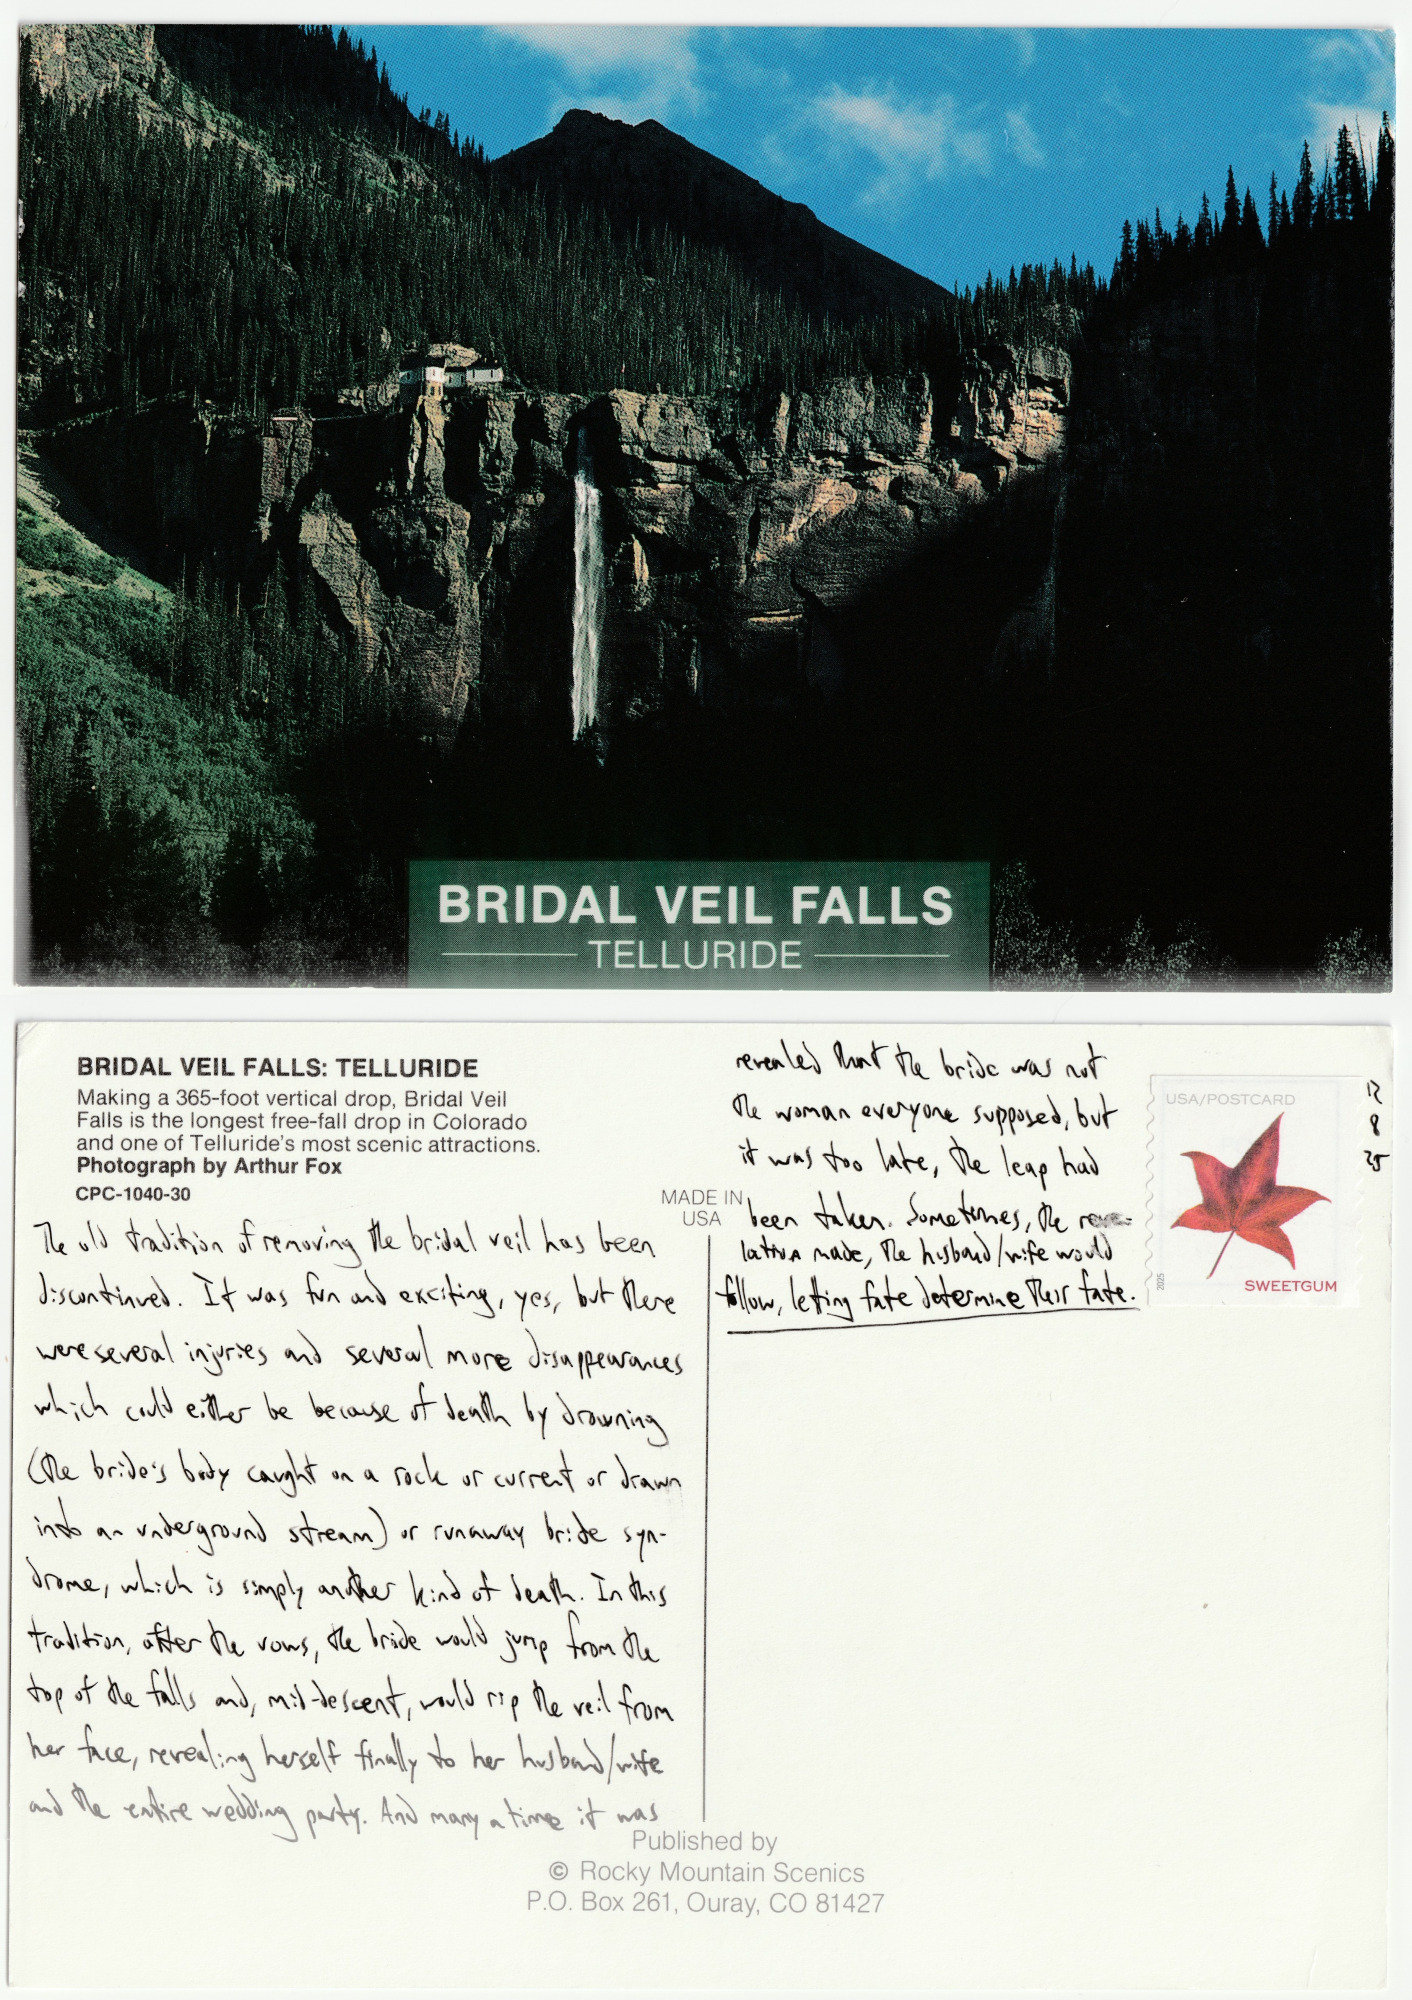 BRIDAL VEIL FALLS
TELLURIDE
BRIDAL VEIL FALLS: TELLURIDE
Making a 365-foot vertical drop, Bridal Veil
Falls is the longest free-fall drop in Colorado
and one of Telluride's most scenic attractions.
Photograph by Arthur Fox
CPC-1040-30
MADE IN
USA
The old tradition of removing the bridal veil has been
discontinued. It was fun and exciting, yes, but there
were several injuries and several more disappearances
which could either be because of death by drowning
(the bride's body caught on a rock or current or drawn
into an underground stream) or runaway bride syn-
drome, which is simply another kind of death. In this
tradition, after the vows, the bride would jump from the
top of the falls and, mid-descent, would rip the veil from
her face, revealing herself finally to her husband/wife
and the entire wedding party. And many a time it was
revealed that the bride was not
the woman everyone supposed, but
it was too late, the leap had
been taken. Sometimes, the reve-
lation made, the husband/wife would
follow, letting fate determine their fate.
USA/POSTCARD
2025
SWEETGUM
12
8
25
Published by
© Rocky Mountain Scenics
P.O. Box 261, Ouray, CO 81427